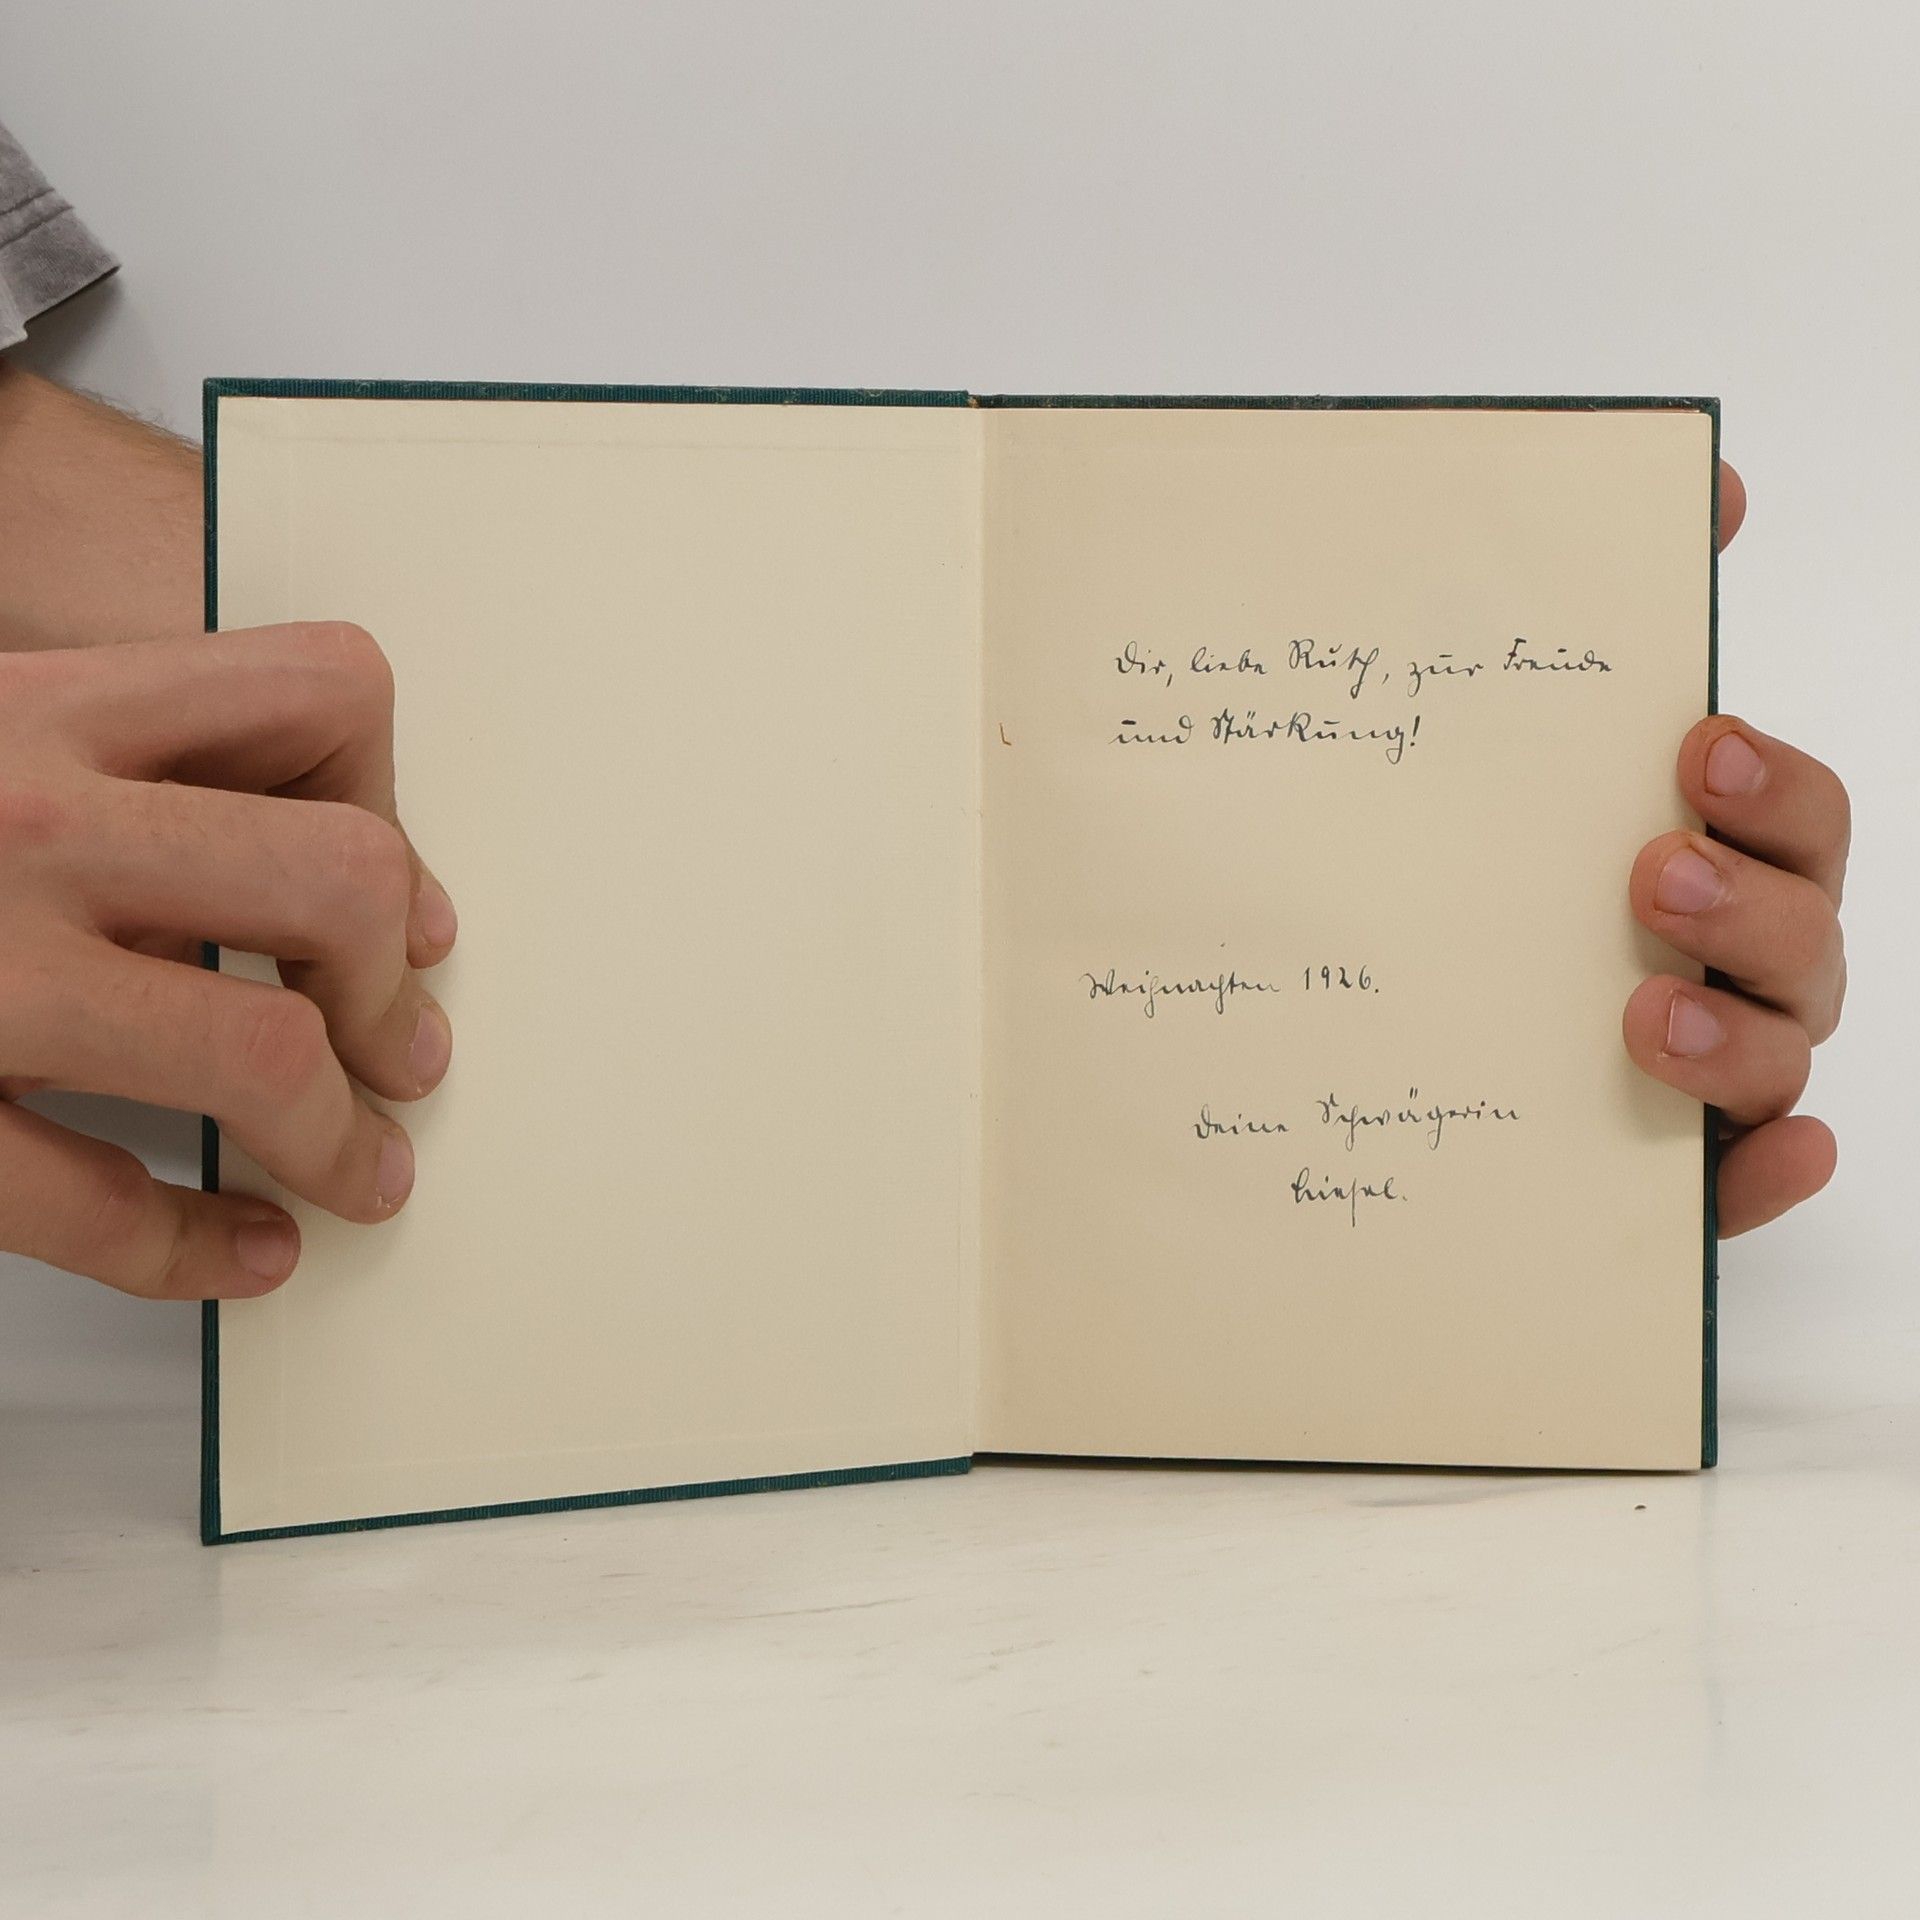 Dir, liebe Ruth, zur Freude
und Stärkung!
Weihnachten 1926.
Deine Schwägerin
Liesel.